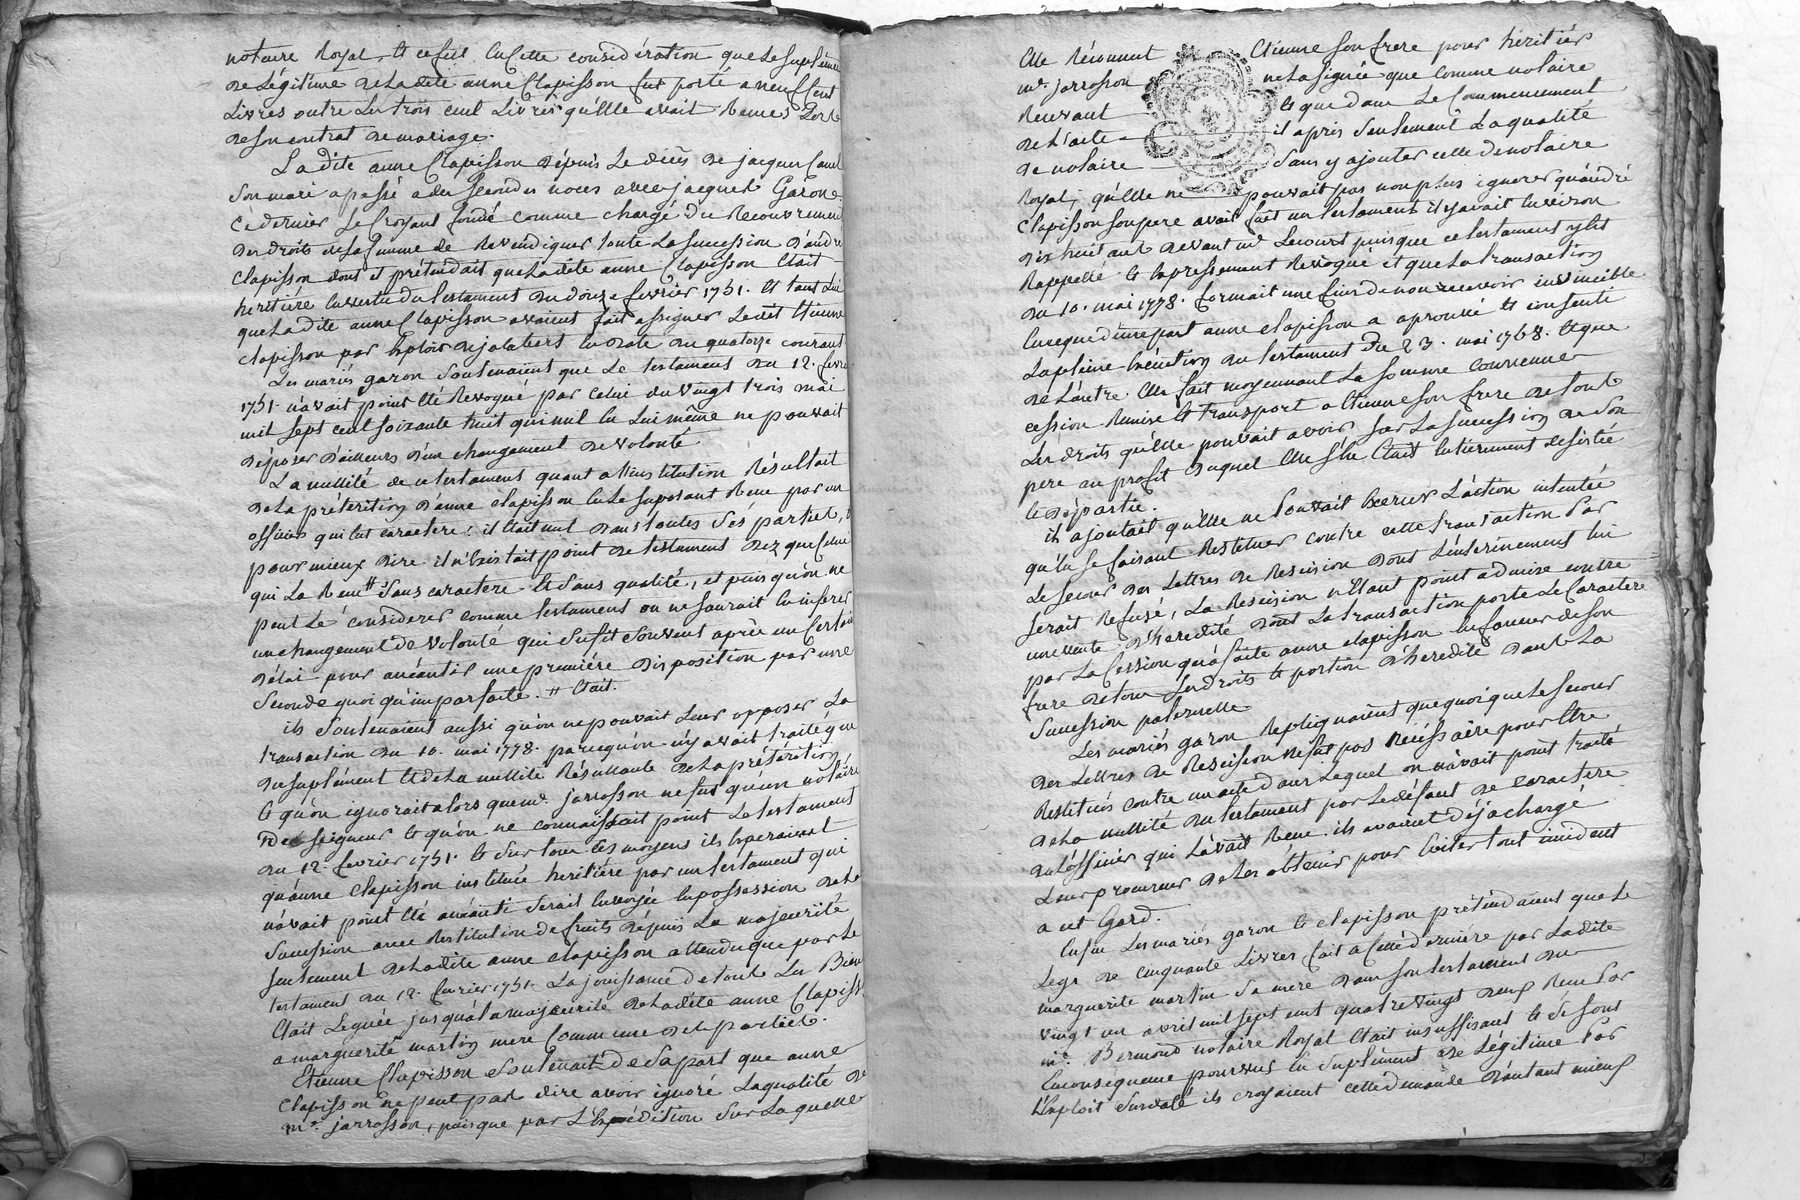 notaire Royal, et ce fut en cette considération que le suplément
de Légitime de Ladite anne Clapisson fut porté a neuf cent
Livres outre Les trois cent Livres qu'elle avait reçues Lors
de son contrat de mariage.
La dite anne Clapisson depuis Le décès de jacques
son mari a passé a des secondes noces avec jacques Garon
ce dernier se croyant fondé comme chargé du Recouvrement
des droits de sa femme de Revendiquer toute La succession d'andré
Clapisson dont il prétendait que Ladite anne Clapisson était
héritière en vertu du testament du douze fevrier 1751. et tant Lui
que Ladite anne Clapisson avaient fait assigner Ledit Etienne
clapisson par Exploit de jalabert en date du quatorze courant
Les mariés garon soutenaient que Le testament du 12. fevrier
1751. n'avait point été Revoqué par celui du vingt trois mai
mil sept cent soixante huit qui nul en Lui même ne pouvait
déposer d'ailleurs d'un changement de volonté.
La nullité de ce testament quant a l'institution Résultait
de La prétérition d'anne clapisson en Le suposant Reçu par un
officier qui eut caractere: il était nul dans toutes ses parties,
pour mieux dire il n'existait point de testament dez que celui
qui La Reçu # sans caractere et sans qualité, et puis qu'on ne
peut Le considerer comme testament on ne saurait en inferer
un changement de volonté qui sufit souvent après un certain
délai pour anéantir une premiére disposition par une
seconde quoi qu'imparfaite. # était.
ils soutenaient aussi qu'on ne pouvait Leur opposer La
transaction du 10. mai 1778. parcequ'on n'y avait traité que
du suplément et de La nullité Résultante de La prétérition
et qu'on ignorait alors que me. jarrosson ne fut qu'un notaire
de seigneur et qu'on ne connaissait point Le testament
du 12. fevrier 1751. et sur tous ces moyens ils esperaient
qu'anne Clapisson instituée heritière par un testament qui
n'avait point été anéanti serait envoyée en possession de La
succession avec Restitution de fruits depuis La majeurité
seulement de Ladite anne clapisson attendu que par Le
testament du 12. fevrier 1751. La jouissance de tous Les Biens
était Léguée jusqu'a La majeurité de Ladite anne Clapisson
a marguerite martin mere commune des parties.
Etienne Clapisson soutenait de sa part que anne
Clapisson ne peut pas dire avoir ignoré La qualité de
me. jarrosson, puisque par L'Expédition sur Laquelle
Elle Reconnut Etienne son frere pour héritier
me. jarrosson ne L'a signée que comme notaire
Recevant et que dans Le Commencement
de L'acte il a pris seulement La qualité
de notaire sans y ajouter celle de notaire
Royal; qu'Elle ne pouvait pas non plus ignorer qu'andré
Clapisson son pere avait fait un testament il y avait environ
dix huit ans devant me. Lecourt puisque ce testament y est
Rappellé et Expressement Revoqué et que La transaction
du 10. mai 1778. formait une fin de non recevoir invincible
en ce que d'une part anne clapisson a aprouvé et consenti
La pleine Exécution du testament du 23. mai 1768. et que
de L'autre Elle fait moyennant La somme convenue
cession Remise et transport a Etienne son frere de tous
Les droits qu'elle pouvait avoir sur La succession de son
pere au profit duquel Elle s'en était entierement desistée
et départie.
il ajoutait qu'Elle ne Pouvait exercer L'action intentée
qu'en se faisant Restituer contre cette transaction Par
Le secour des Lettres de Rescision dont L'enterinement lui
serait Refusé, La Rescision n'Etant point admise contre
une vente d'heredité dont La transaction porte Le caractere
par La cession qu'a faite anne clapisson en faveur de son
frere de tous ses droits et portion d'heredité dans La
succession paternelle
Les mariés garon Repliquaient que quoi que Le secour
des Lettres de Rescision ne fut pas nécéssaire pour Etre
Restitués contre un acte dans Lequel on n'avait point traité
de La nullité du testament par Le défaut de caractere
de L'officier qui L'avait Reçu. ils avaient déja chargé
Leur procureur de Les obtenir pour Eviter tout incident
a cet Egard.
Enfin Les mariés garon et clapisson prétendaient que Le
Legs de cinquante Livres fait a Cette dernière par Ladite
marguerite martin sa mere dans son testament du
vingt un avril mil sept cent quatre vingt deux Reçu Par
me. Bermond notaire Royal était insuffisant et se sont
en conséquence pourvus en suplément de Légitime Par
L'Exploit susdaté ils croyaient cette demande d'autant mieux